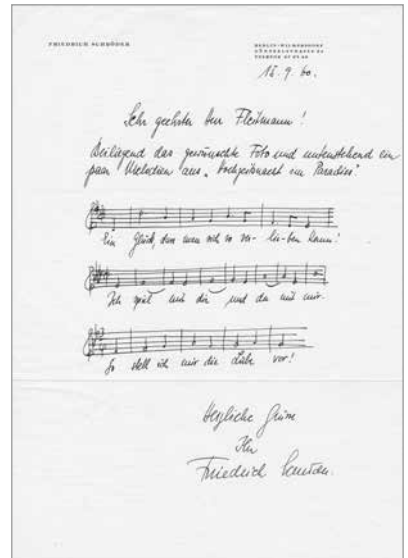 FRIEDRICH SCHRÖDER
BERLIN-WILMERSDORF
15. 9. 60.
Sehr geehrter Herr Fleitmann!
Beiliegend das gewünschte Foto und untenstehend ein
paar Melodien aus „Hochzeitsnacht im Paradies"
Ein Glück, dass man sich so ver- lie- ben kann!
Ich spiel mit dir und du mit mir.
So stell ich mir die Liebe vor!
Herzliche Grüsse
Ihr
Friedrich Schröder.